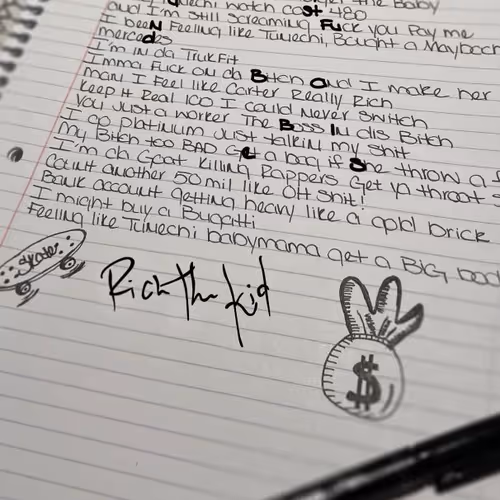 the Baby
and I'm still screaming Fuck you Pay me
watch cost 480
I been Feeling like Tunechi, Bought a Maybach
mercedes
I'm in da Trukfit
Imma Fuck on da Bitch and I make her
man I Feel like Carter Really Rich
Keep it Real 100 I could Never snitch
You Just a worker The Boss In dis Bitch
I go platinum Just talkin my shit
My Bitch too BAD Get a bag if She throw a f
I'm da Goat Killing Rappers Get ya throat
Count another 50 mil like Oh Shit!
Bank account getting heavy like a gold brick
I might buy a Bugatti
Feeling like Tunechi babymama get a BIG
Skate
Rich the kid
$